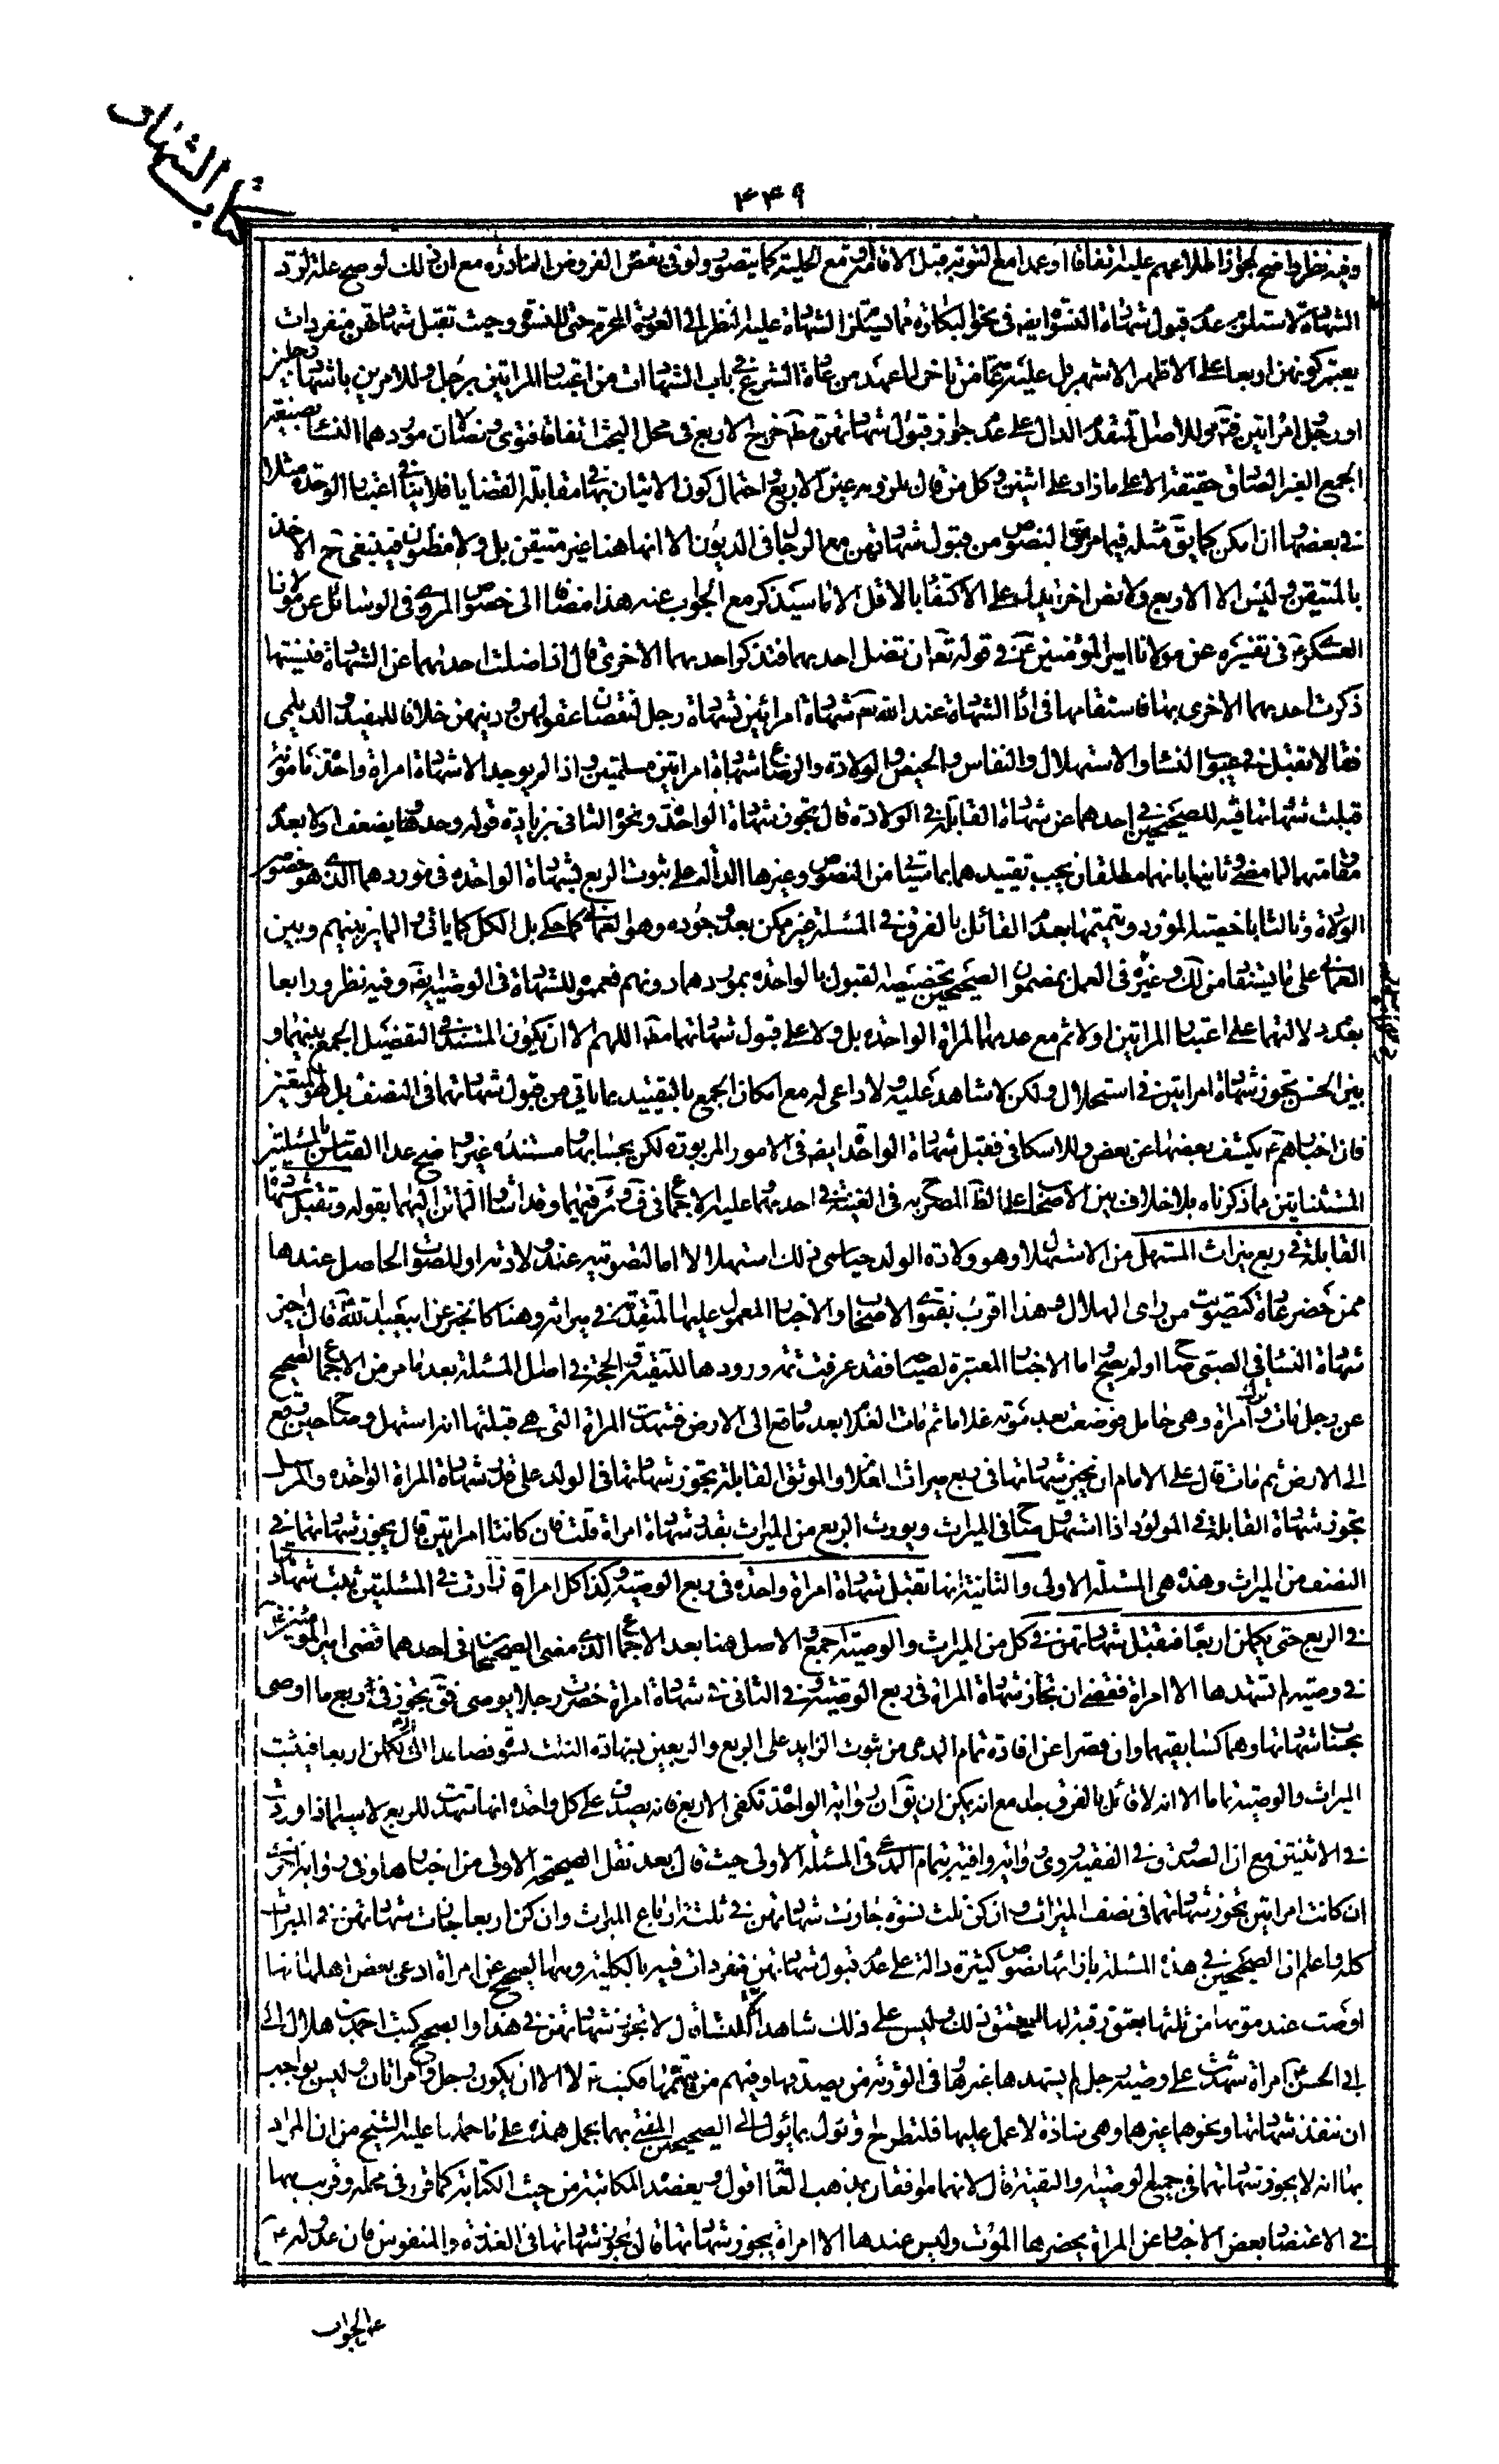 كتاب الشهادات
٤٤٩
وفيه نظر واضح لجواز اطلاعهم عليه اتفاقا او عمدا مع التوبة قبل الاقامة او مع الحلية كما يتصور ولو في بعض الفروض النادرة مع ان ذلك لو صح علة لرد
الشهادة لاستلزم عدم قبول شهادة النسوة ايضا في نحو البكارة مما يستلزم الشهادة عليه النظر الى العورة المحرم حتى للنسوة وحيث تقبل شهادتهن منفردات
يعتبر كونهن اربعا على الاظهر الاشهر بل عليه عامة من تاخر لما عهد من عادة الشرع في باب الشهادات من اعتبار المراتين برجل وللامر باشهاد رجلين
او رجل وامراتين وللاصل المتقدم الدال على عدم جواز قبول شهادتهن مطلقا خرج الاربع في محل البحث اتفاقا فتوى ونصا لان موردهما النساء بصيغة
الجمع الغير الصادق حقيقة الا على ما زاد على اثنين وكل من قال بلزومه عين الاربع واحتمال كون الاتيان بها في مقابلة القضايا فلا ينافي اعتبار الوحدة مثلا
في بعضها وان امكن كما يقال مثله فيما مر من النصوص من قبول شهادتهن مع الرجال في الديون الا انها هنا غير متيقن بل ولا مظنون فينبغي ح الاخذ
بالمتيقن وليس الا الاربع ولا نص اخر يدل على الاكتفاء بالاقل الا ما سيذكر مع الجواب عنه هذا مضافا الى خصوص المروي في الوسائل عن مولانا
العسكري في تفسيره عن مولانا امير المؤمنين ع في قوله تعالى ان تضل احديهما فتذكر احديهما الاخرى قال اذا ضلت احديهما عن الشهادة فنسيتها
ذكرت احديهما الاخرى بها فاستقامها في اداء الشهادة عند الله تعالى شهادة امراتين بشهادة رجل لنقصان عقولهن ودينهن خلافا للمفيد والديلمي
فقالا تقبل في عيوب النساء والاستهلال والنفاس والحيض والولادة والرضاع شهادة امراتين مسلمتين واذا لم يوجد الا شهادة امراة واحدة مامونة
قبلت شهادتها فيه للصحيحين في احدهما عن شهادة القابلة في الولادة قال تجوز شهادة الواحدة ونحو الثاني بزيادة قوله وحدها ويضعف اولا بعدم
مقاومتهما لما مضى وثانيا بانهما مطلقان يجب تقييدهما بما سياتي من النصوص وغيرها الدالة على ثبوت الربع بشهادة الواحدة في موردهما الذي هو خصوص
الولادة وثالثا باخصية المورد وتتميمها بعدم القائل بالفرق في المسئلة غير ممكن بعد وجوده وهو العماني كما حكي بل الكل كما ياتي والمايز بينهم وبين
العماني على ما يستفاد من لك وغيره في العمل بمضمون الصحيحين تخصيصه القبول بالواحدة بموردهما دونهم فعمموه للشهادة في الوصية ايضا وفيه نظر ورابعا
بعدم دلالتهما على اعتبار المراتين اولا ثم مع عدمهما المراة الواحدة بل ولا على قبول شهادتهما مطلقا اللهم الا ان يكون المستند في التفصيل الجمع بينهما و
بين الحسن تجوز شهادة امراتين في استهلال ولكن لا شاهد عليه ولا داعي له مع امكان الجمع بالتقييد بما ياتي من قبول شهادتهما في النصف بل هو المتعين
فان اخبارهم ع يكشف بعضها عن بعض وللاسكافي فقبل شهادة الواحدة ايضا في الامور المزبورة لكن بحسابها ومستنده غير واضح عدا القياس بالمسئلتين
المستثنايتين مما ذكرناه بلا خلاف بين الاصحاب على الظ المصرح به في الغنية في احديهما وعليه الاجماع في ف وئر فيهما وقد اشار الماتن اليهما بقوله وتقبل شهادة
القابلة في ربع ميراث المستهل من الاستهلال وهو ولادة الولد حيا سمي ذلك استهلالا اما لتصويته عند ولادته او للصوت الحاصل عندها
ممن حضر عادة كتصويت من راى الهلال وهذا اقرب بفتوى الاصحاب والاخبار المعمول عليها المتقدمة في ميراثه وهنا كالخبر عن ابيعبد الله ع قال اجيز
شهادة النساء في الصبي صاح اولم يصح اما الاخبار المعتبرة لصياحه فقد عرفت ثمه ورودها للتقية والحجة في اصل المسئلة بعد ما مر من الاجماع الصحيح
عن رجل مات وترك امراة وهي حامل فوضعت بعد موته غلاما ثم مات الغلام بعد ما وقع الى الارض فشهدت المراة التي هي قبلتها انه استهل وصاح حين وقع
الى الارض ثم مات قال على الامام ان يجيز شهادتها في ربع ميراث الغلام والموثق القابلة تجوز شهادتها في الولد على قدر شهادة المراة الواحدة والمرسل
تجوز شهادة القابلة في المولود اذا استهل وصاح في الميراث ويورث الربع من الميراث بقدر شهادة امراة قلت فان كانتا امراتين قال يجوز شهادتهما في
النصف من الميراث وهذه هي المسئلة الاولى والثانية انها تقبل شهادة امراة واحدة في ربع الوصية وكذا كل امراة زادت في المسئلتين يثبت شهادتها
في الربع حتى يكملن اربعا فتقبل شهادتهن في كل من الميراث والوصية اجمع والاصل هنا بعد الاجماع الذي مضى الصحيحان في احدهما قضى امير المؤمنين ع
في وصية لم تشهدها الا امراة فقضى ان تجاز شهادة المراة في ربع الوصية وفي الثاني في شهادة امراة حضرت رجلا يوصي فق تجوز في ربع ما اوصى
بحساب شهادتها وهما كسابقيهما وان قصرا عن افادة تمام المدعى من ثبوت الزايد على الربع والربعين بشهادة الثلث نسوة فصاعدا الى ان يكملن اربعا فيثبت
الميراث والوصية تماما الا انه لا قائل بالفرق جدا مع انه يمكن ان يق ان رواية الواحدة تكفي الاربع فانه يصدق على كل واحدة انها شهدت للربع لاسيما اذا وردت
في الاثنتين مع ان الصدوق في الفقيه روى رواية وافية بتمام المدعى في المسئلة الاولى حيث قال بعد نقل الصحيحة الاولى من اخبارها وفي رواية اخرى
ان كانت امراتين تجوز شهادتهما في نصف الميراث وان كن ثلث نسوة جازت شهادتهن في ثلثة ارباع الميراث وان كن اربعا جازت شهادتهن في الميراث
كله واعلم ان الصحيحين في هذه المسئلة بازائهما نصوص كثيرة دالة على عدم قبول شهادتهن منفردات فيه بالكلية ومنها الصحيح عن امراة ادعى بعض اهلها انها
اوصت عند موتها من ثلثها بعتق رقبة لها ايعتق ذلك وليس على ذلك شاهد الا النساء قال لا تجوز شهادتهن في هذا والصحيح كتب احمد بن هلال الى
ابي الحسن ع امراة شهدت على وصية رجل لم يشهدها غيرها وفي الورثة من يصدقها وفيهم من يتهمها فكتب ع لا الا ان يكون رجل وامراتان وليس بواجب
ان تنفذ شهادتها ونحوهما غيرهما وهي شاذة لا عمل عليها فلتطرح او تول بما يؤل الى الصحيحين المفتى بهما بحمل هذه على ما حملها عليه الشيخ من ان المراد
بها انه لا يجوز شهادتهما في جميع الوصية والتقية قال لانهما موافقان لمذهب العامة اقول ويعضده المكاتبة من حيث الكتابة كما قرر في محله وقريب منها
في الاعتضاد بعض الاخبار عن المراة يحضرها الموت وليس عندها الا امراة يجوز شهادتها قال تجوز شهادتها في العذرة والمنفوس فان عدوله ع
عن الجواب